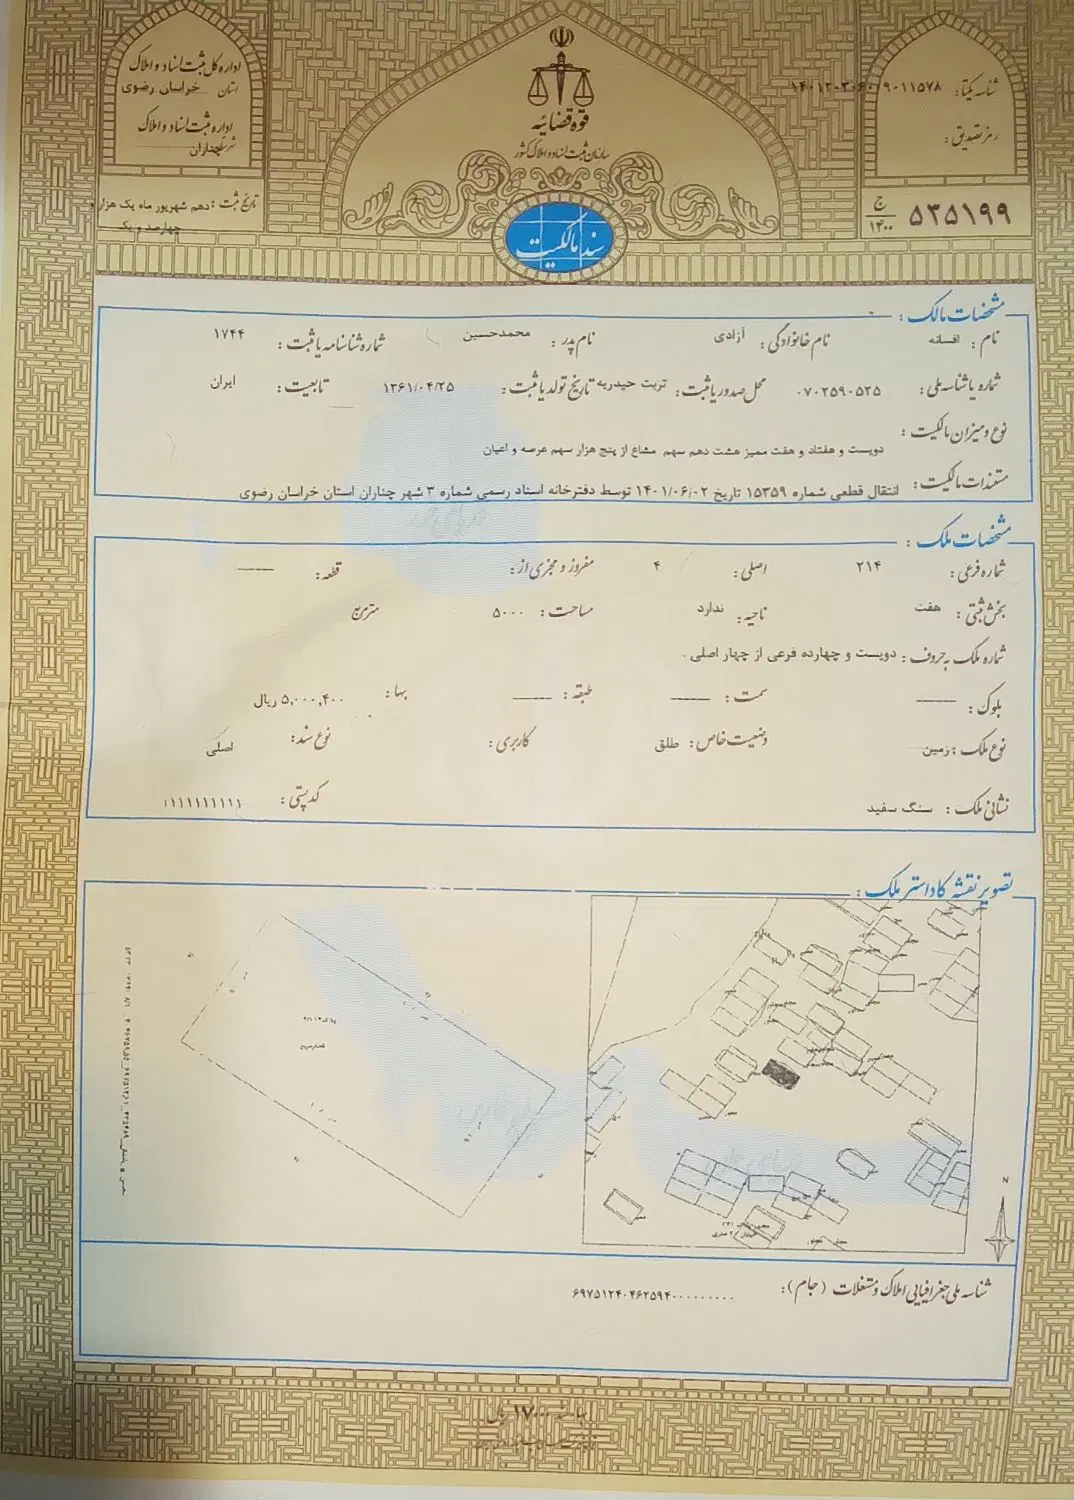 اداره کل ثبت اسناد و املاک
استان خراسان رضوی
اداره ثبت اسناد و املاک
شهرستان چناران
تاریخ ثبت : دهم شهریور ماه یک هزار و
چهارصد و یک
قوه قضائیه
سازمان ثبت اسناد و املاک کشور
سند مالکیت
شناسه یکتا: ۱۴۰۱۲۰۳۰۶۰۰۹۰۱۱۵۷۸
رمز تصدیق :
۵۳۵۱۹۹ ج ۱۴۰۰
مشخصات مالک :
نام : افسانه نام خانوادگی : آزادی نام پدر : محمدحسین شماره شناسنامه یا ثبت : ۱۷۴۴
شماره یا شناسه ملی : ۰۷۰۲۵۹۰۵۲۵ محل صدور یا ثبت : تربت حیدریه تاریخ تولد یا ثبت : ۱۳۶۱/۰۴/۲۵ تابعیت : ایران
نوع و میزان مالکیت :
دویست و هفتاد و هفت ممیز هشت دهم سهم مشاع از پنج هزار سهم عرصه و اعیان
مستندات مالکیت : انتقال قطعی شماره ۱۵۳۵۹ تاریخ ۱۴۰۱/۰۶/۰۲ توسط دفترخانه اسناد رسمی شماره ۳ شهر چناران استان خراسان رضوی
مشخصات ملک :
شماره فرعی : ۲۱۴ اصلی : ۴ مفروز و مجزی از : قطعه :
بخش ثبتی : هفت ناحیه : ندارد مساحت : ۵۰۰۰ مترمربع
شماره ملک به حروف : دویست و چهارده فرعی از چهار اصلی .
بلوک : سمت : طبقه : بها : ۵,۰۰۰,۴۰۰ ریال
نوع ملک : زمین وضعیت خاص : طلق کاربری : نوع سند : اصلی
نشانی ملک : سنگ سفید کد پستی : ۱۱۱۱۱۱۱۱۱۱
تصویر نقشه کاداستر ملک :
N
شناسه ملی جغرافیایی املاک و مستغلات (جام) : ۶۹۷۵۱۲۴۰۴۶۲۵۹۴۰۰۰۰۰۰۰۰۰
بها سند ۱۷۰۰۰ ریال